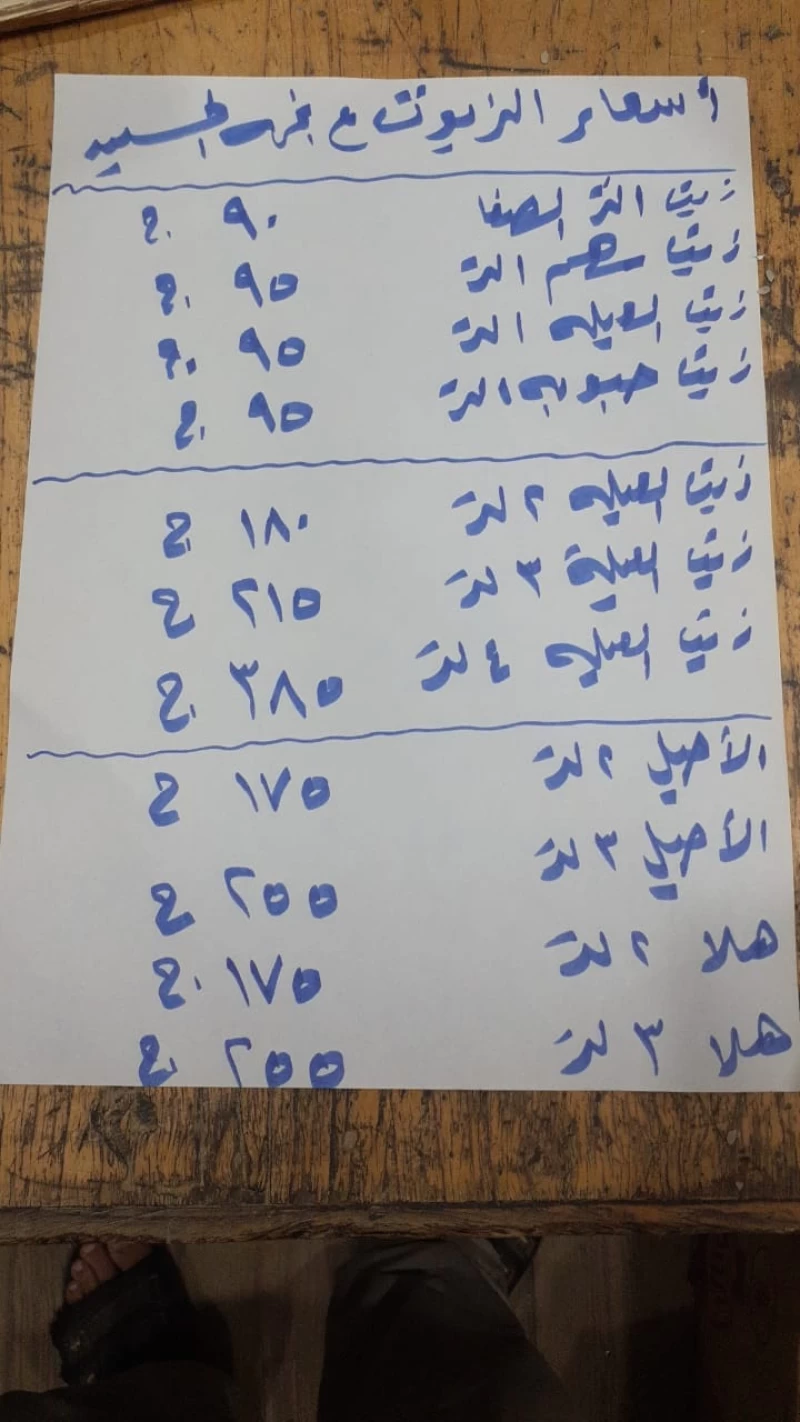 أسعار الزيوت ع
زيت ١ لتر الصفا ٩٠ ج
زيت سهم ١ لتر ٩٥ ج
زيت العيله ١ لتر ٩٥ ج
زيت حبوبه ١ لتر ٩٥ ج
زيت العيله ٢ لتر ١٨٠ ج
زيت العيلة ٣ لتر ٢١٥ ج
زيت العيله ٤ لتر ٣٨٥ ج
الأصيل ٢ لتر ١٧٥ ج
الأصيل ٣ لتر ٢٥٥ ج
هلا ٢ لتر ١٧٥ ج
هلا ٣ لتر ٢٥٥ ج